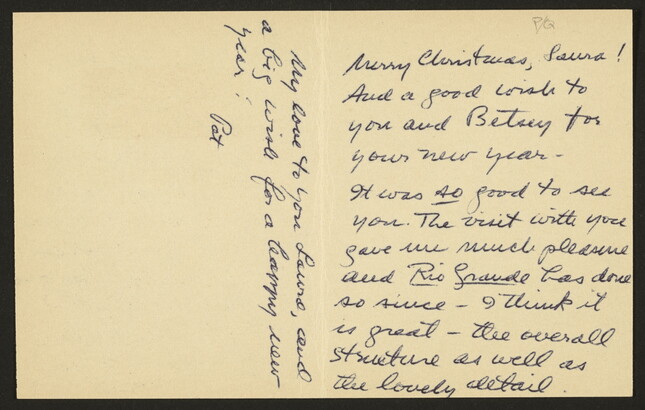 PG
Merry Christmas, Laura!
And a good wish to
you and Betsey for
your new year -
It was so good to see
you. The visit with you
gave me much pleasure
and Rio Grande has done
so since - I think it
is great - the overall
structure as well as
the lovely detail.
My love to you Laura, and
a big wish for a happy new
year!
Pat